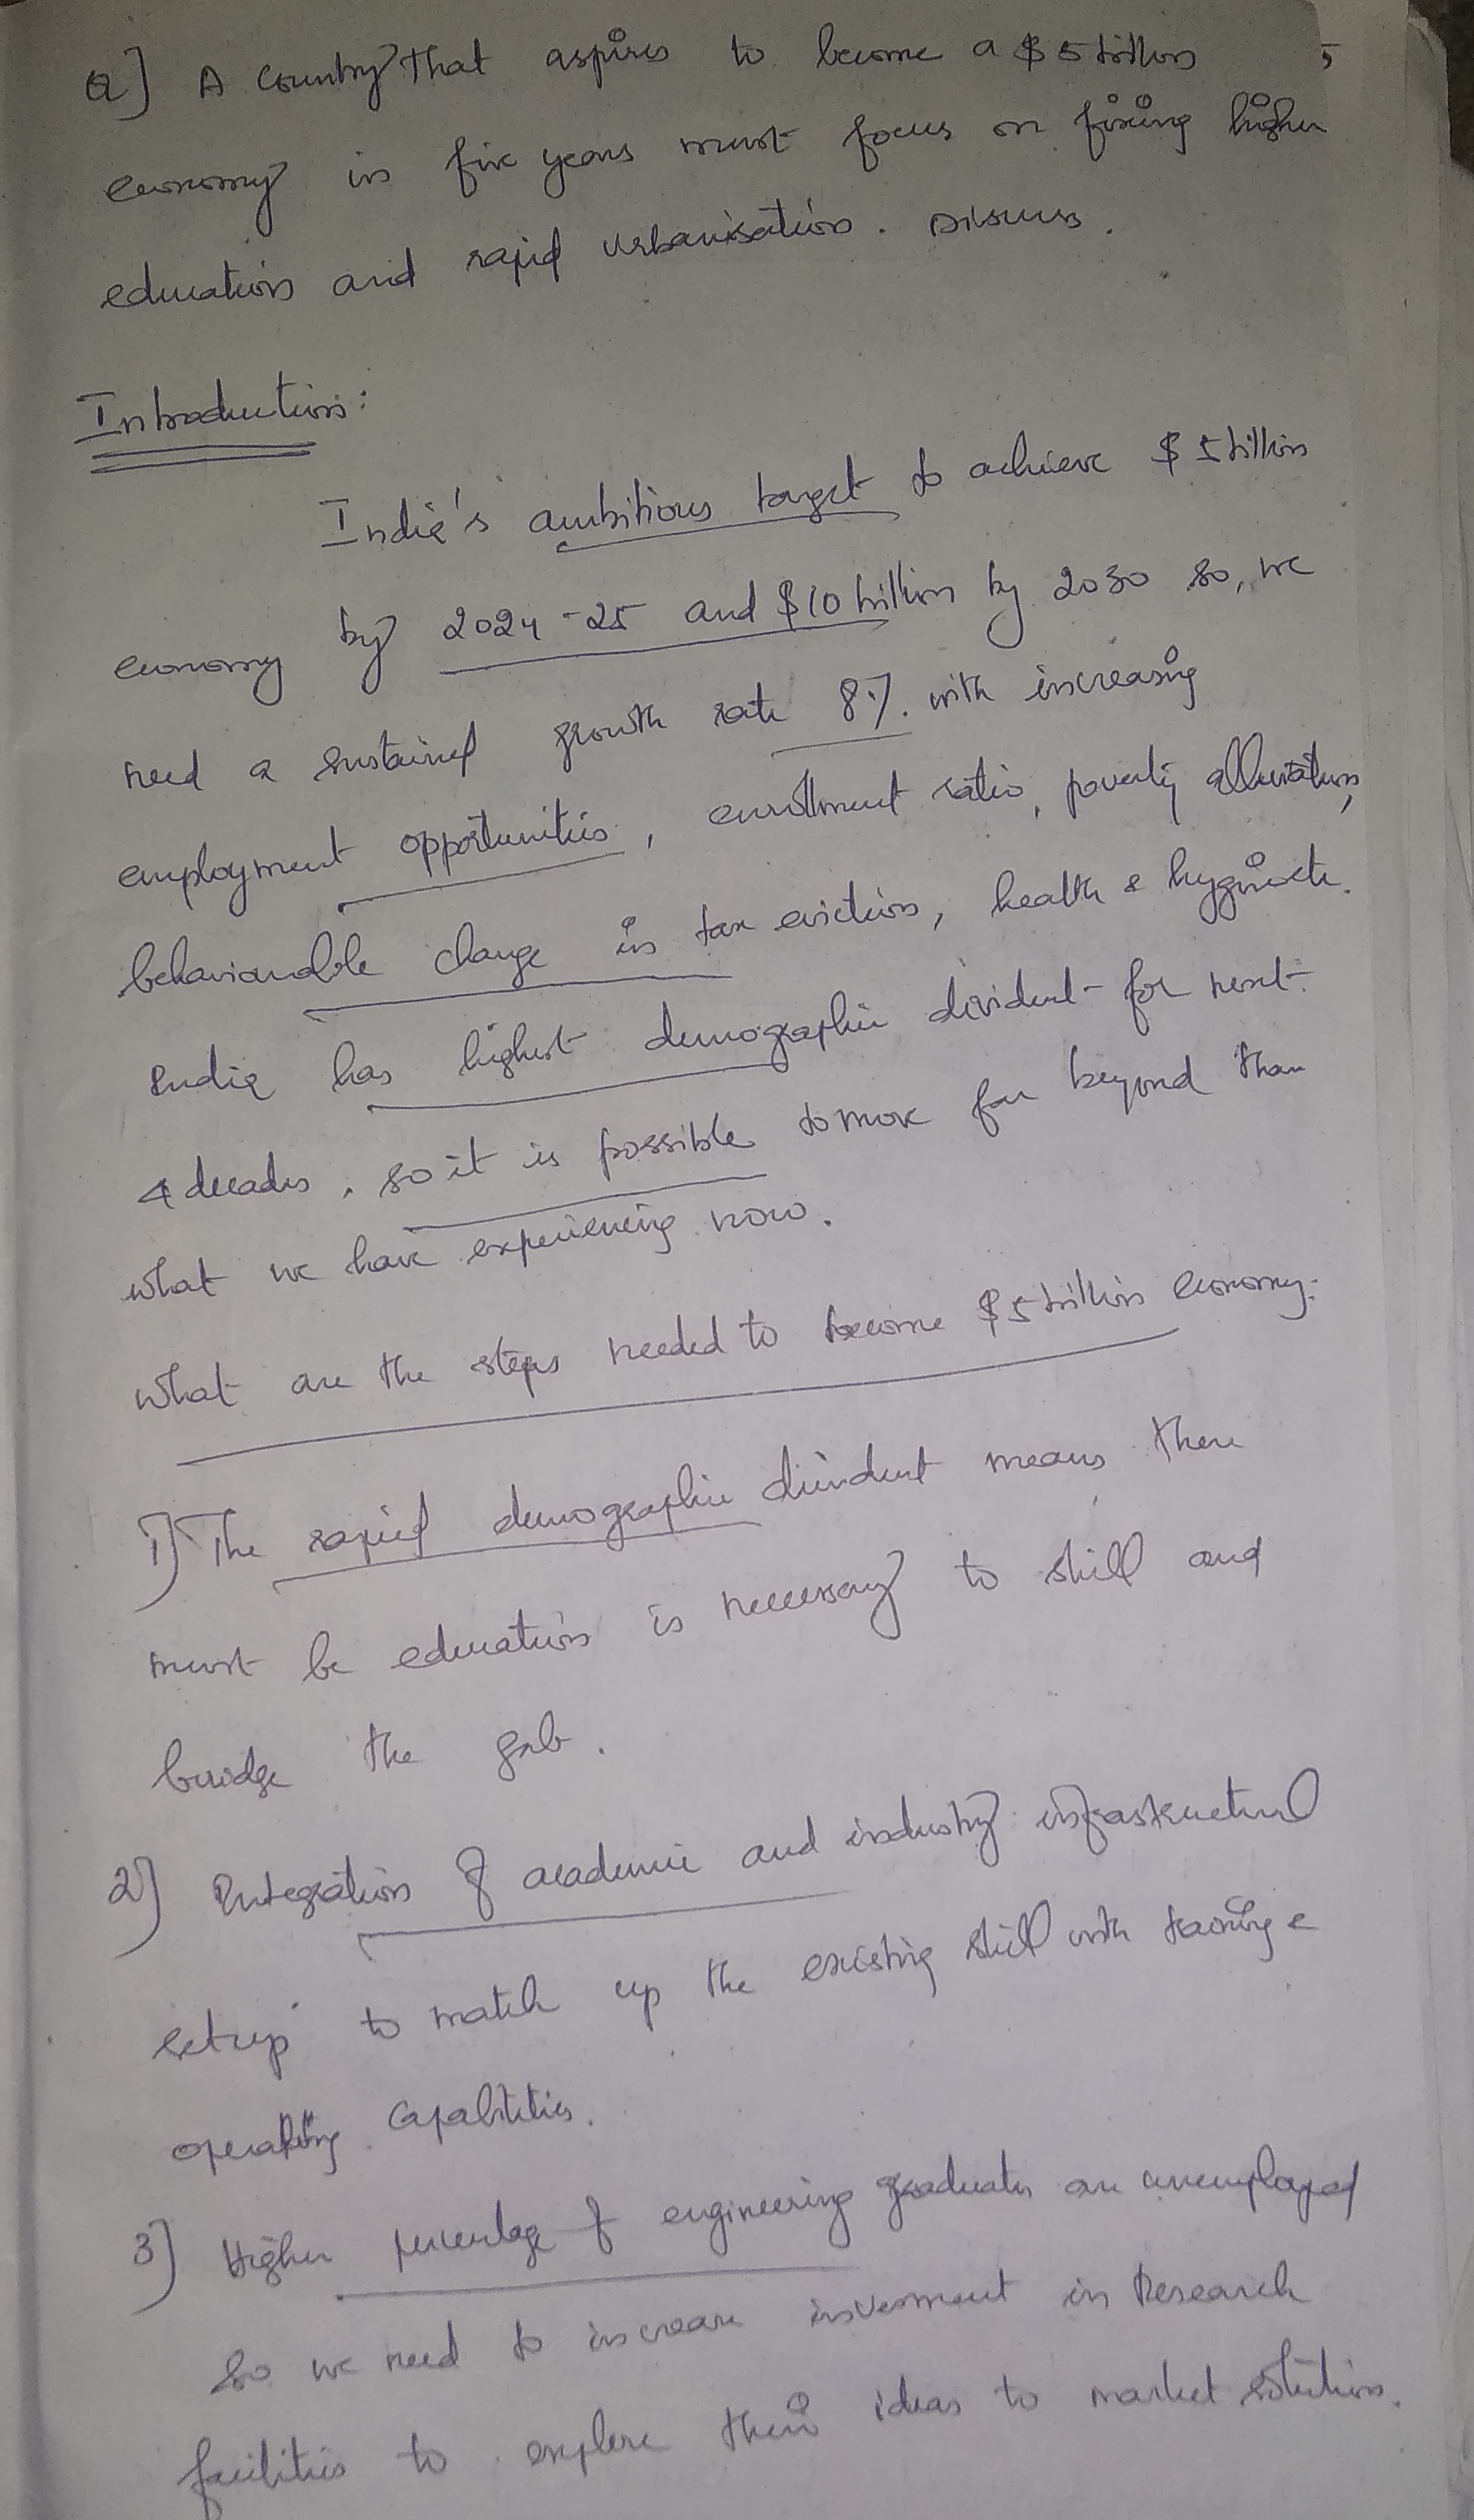 Q] A Country that aspires to become a $ 5 trillion
5
economy in five years must focus on fixing higher
education and rapid urbanisation. Discuss.
Introduction:
India's ambitious target to achieve $ 5 trillion
economy by 2024-25 and $10 trillion by 2030 so, we
need a sustained growth rate 8%. with increasing
employment opportunities, enrollment ratio, poverty alleviation,
behaviourable change in tax eviction, health & hygiene etc.
India has highest demographic divident for next
4 decades. so it is possible to move far beyond than
what we have experiencing now.
What are the steps needed to become $5 trillion economy:
1] The rapid demographic divident means there
must be education is necessary to skill and
bridge the gab.
2] Integration of academic and industry infrastructural
setup to match up the existing skill with training &
operating capabilities.
3] Higher percentage of engineering graduates are unemployed
so we need to increase invesment in Research
facilities to explore their ideas to market solutions.